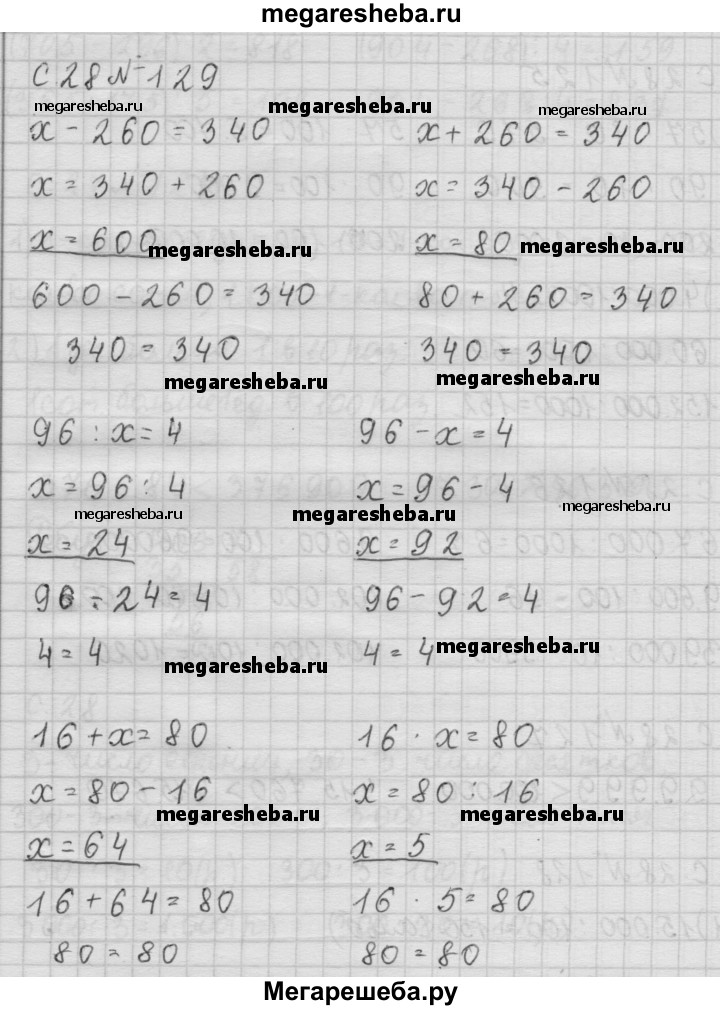 megaresheba.ru
С 28 № 129
megaresheba.ru megaresheba.ru megaresheba.ru
x - 260 = 340 x + 260 = 340
x = 340 + 260 x = 340 - 260
x = 600 x = 80
megaresheba.ru megaresheba.ru
600 - 260 = 340 80 + 260 = 340
340 = 340 340 = 340
megaresheba.ru megaresheba.ru
96 : x = 4 96 - x = 4
x = 96 : 4 x = 96 - 4
megaresheba.ru megaresheba.ru megaresheba.ru
x = 24 x = 92
96 : 24 = 4 96 - 92 = 4
4 = 4 4 = 4
megaresheba.ru megaresheba.ru
16 + x = 80 16 · x = 80
x = 80 - 16 x = 80 : 16
megaresheba.ru megaresheba.ru
x = 64 x = 5
16 + 64 = 80 16 · 5 = 80
80 = 80 80 = 80
Мегарешеба.ру